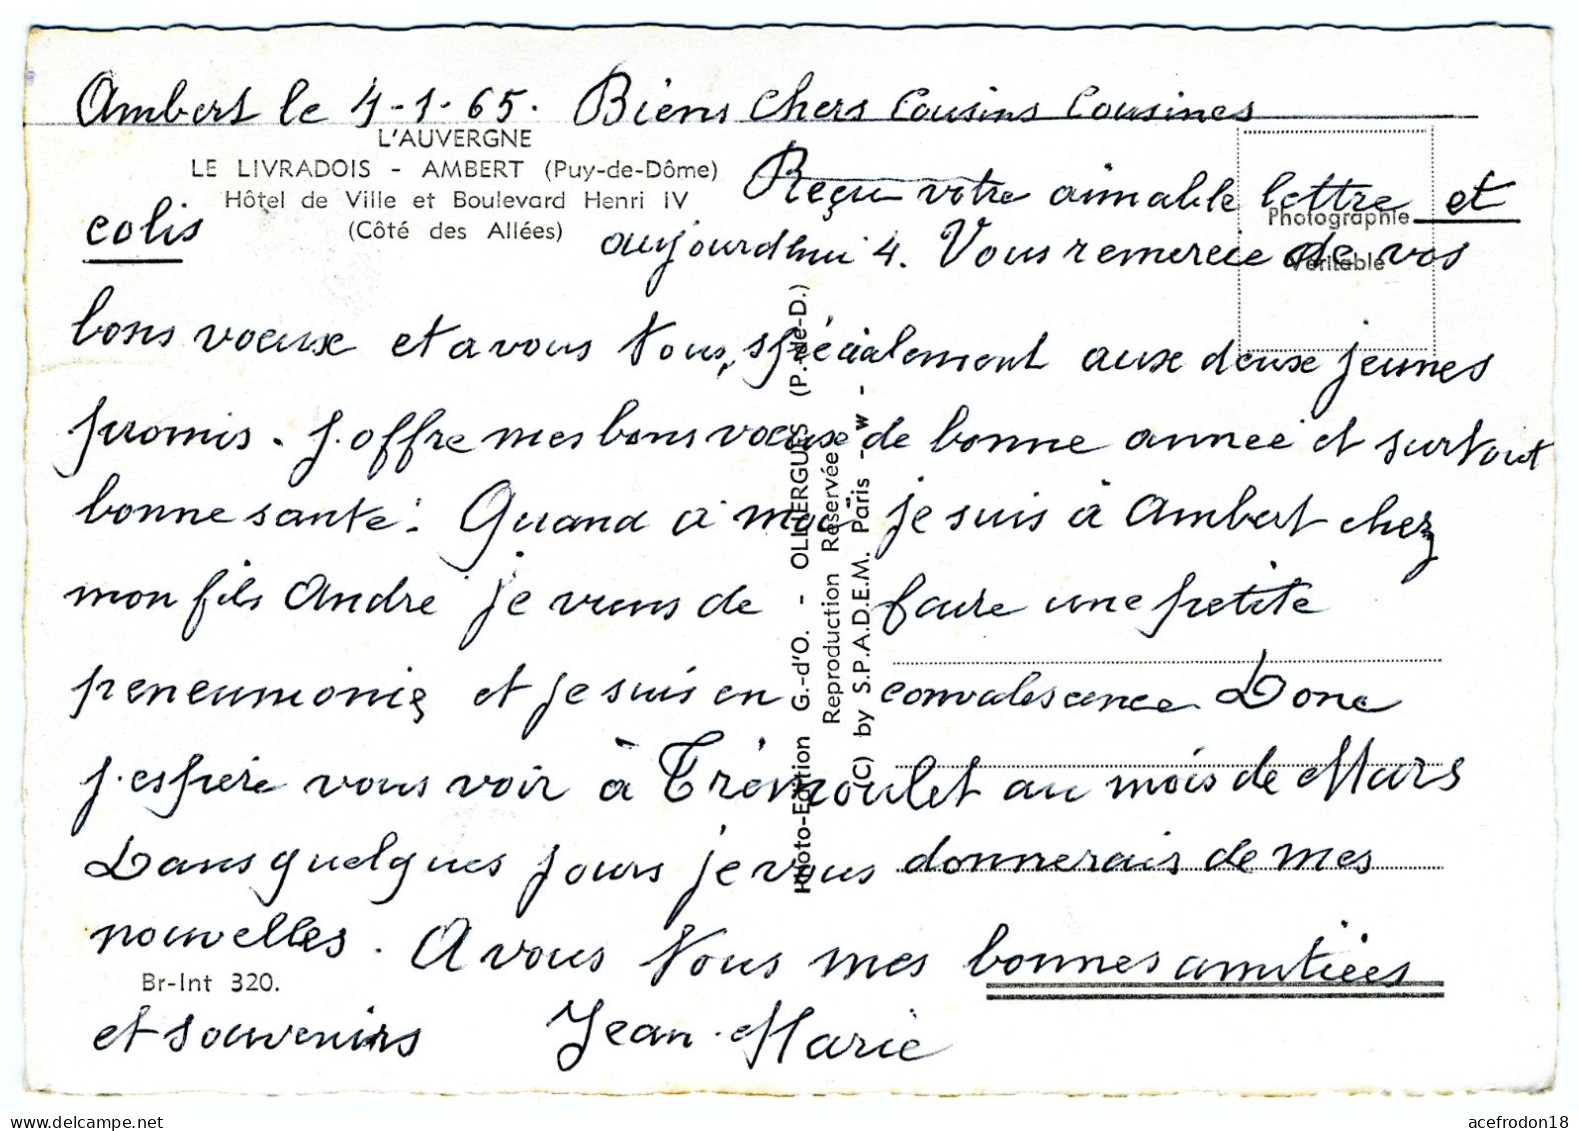 Ambert le 4-1-65. Biens Chers Cousins Cousines
L'AUVERGNE
LE LIVRADOIS - AMBERT (Puy-de-Dôme)
Hôtel de Ville et Boulevard Henri IV
(Côté des Allées)
Photographie
Véritable
Reçu votre aimable lettre et
colis aujourdhui 4. Vous remercie de vos
bons voeuxe et a vous tous, spécialement auxe deuxe jeunes
promis. j.offre mes bons voeuxe de bonne année et surtout
bonne santé. Quand à moi je suis à Ambert chez
mon fils André je viens de faire une petite
peneumonie et je suis en convalescence Donc
j.espère vous voir à Trémoulet au mois de Mars
Dans quelques jours je vous donnerais de mes
nouvelles. A vous tous mes bonnes amitiées
et souvenirs Jean-Marie
Br-Int 320.
Photo-Edition G.-d'O. - OLLIERGUES (P.-de-D.)
Reproduction Réservée
(C) by S.P.A.D.E.M. Paris - w -
acefrodon18